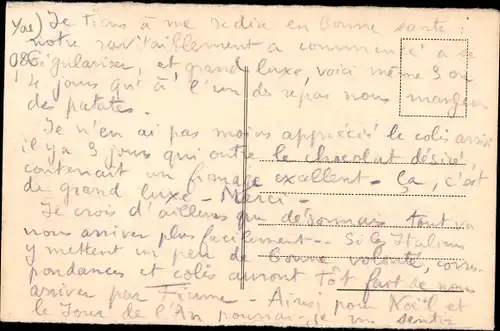 Je tiens à me redire en bonne santé,
notre ravitaillement a commencé à se
régulariser, et grand luxe, voici même 3 ou
4 jours qu'à l'un des repas nous mangeons
des patates.
Je n'en ai pas moins apprécié le colis arrivé
il y a 3 jours qui outre le chocolat désiré,
contenait un fromage excellent - Ça, c'est
du grand luxe - Merci -
Je crois d'ailleurs que désormais tout va
nous arriver plus facilement -- Si les Italiens
y mettent un peu de bonne volonté, corres-
pondances et colis auront tôt fait de nous
arriver par Fiume - Ainsi pour Noël et
le Jour de l'An pourrai-je me sentir